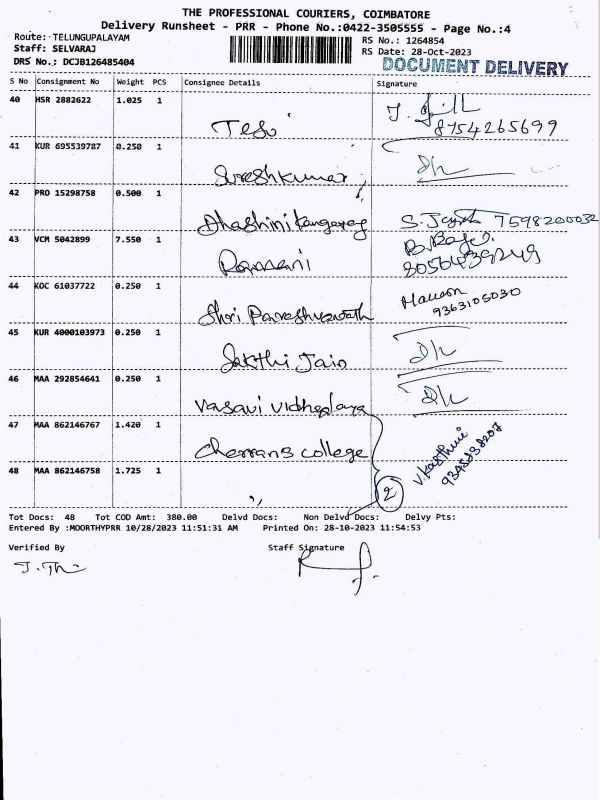 THE PROFESSIONAL COURIERS, COIMBATORE
Delivery Runsheet - PRR - Phone No.:0422-3505555 - Page No.:4
Route: TELUNGUPALAYAM
RS No.: 1264854
Staff: SELVARAJ
RS Date: 28-Oct-2023
DRS No.: DCJB126485404
DOCUMENT DELIVERY
S No Consignment No Weight PCS Consignee Details Signature
40 HSR 2882622 1.025 1
Teso
8754265699
41 KUR 695539787 0.250 1
Sureshkumar
42 PRO 15298758 0.500 1
Dhashini kangaraj S. 7598200032
43 VCM 5042899 7.550 1
Ramani
8056439249
44 KOC 61037722 0.250 1
Shri Pareshwanath
9363105030
45 KUR 4000103973 0.250 1
Sakthi Jain
46 MAA 292854641 0.250 1
Vasavi vidhyalaya
47 MAA 862146767 1.420 1
Cherrans college
48 MAA 862146758 1.725 1
,,
2
V.Kasthuri
Tot Docs: 48 Tot COD Amt: 380.00 Delvd Docs: Non Delvd Docs: Delvy Pts:
Entered By :MOORTHYPRR 10/28/2023 11:51:31 AM Printed On: 28-10-2023 11:54:53
Verified By Staff Signature